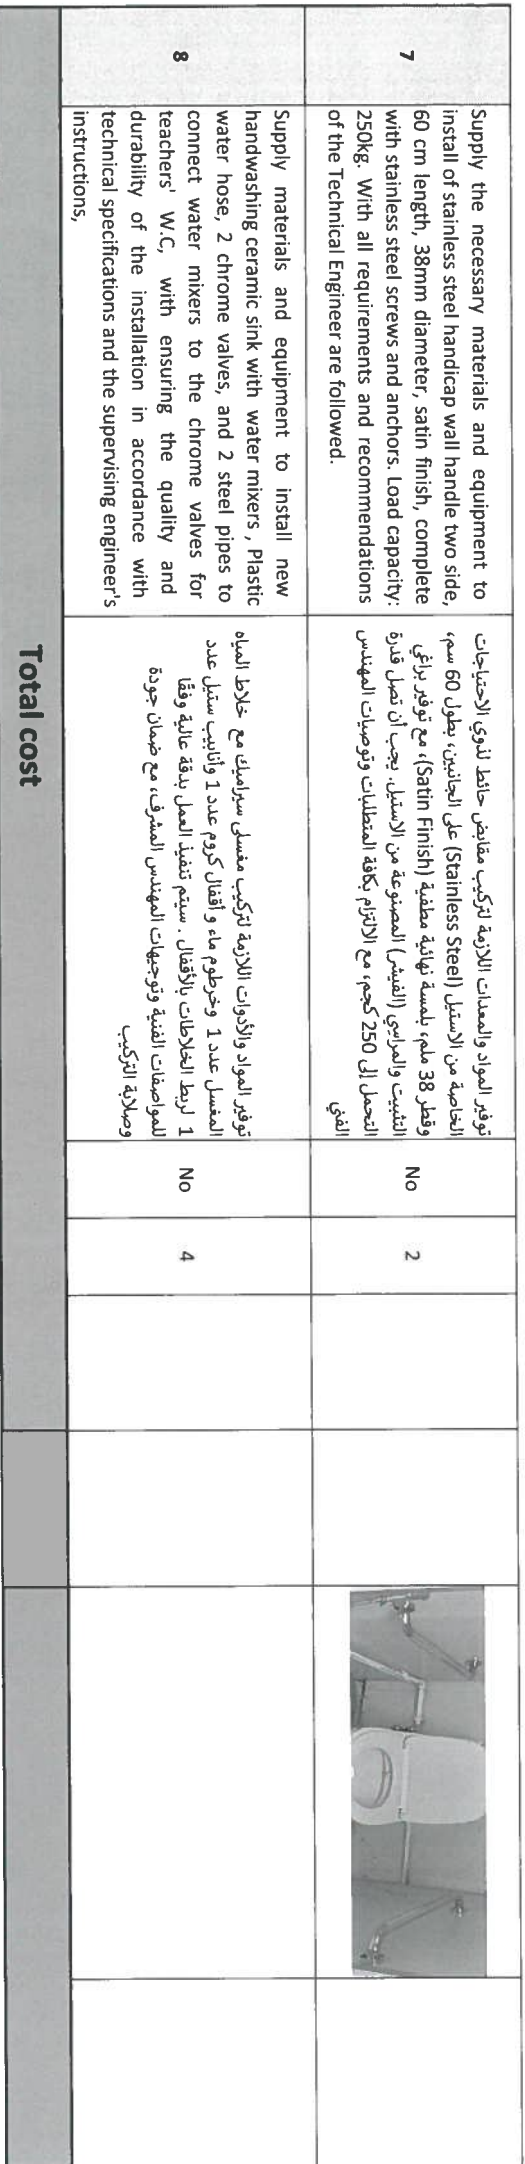 7
Supply the necessary materials and equipment to
install of stainless steel handicap wall handle two side,
60 cm length, 38mm diameter, satin finish, complete
with stainless steel screws and anchors. Load capacity:
250kg. With all requirements and recommendations
of the Technical Engineer are followed.
توفير المواد والمعدات اللازمة لتركيب مقابض حائط لذوي الاحتياجات
الخاصة من الاستيل (Stainless Steel) على الجانبين، بطول 60 سم،
وقطر 38 ملم، بلمسة نهائية مطفية (Satin Finish)، مع توفير براغي
التثبيت والمراسي (الفيشر) المصنوعة من الاستيل. يجب أن تصل قدرة
التحمل إلى 250 كجم، مع الالتزام بكافة المتطلبات وتوصيات المهندس
الفني
No
2
8
Supply materials and equipment to install new
handwashing ceramic sink with water mixers , Plastic
water hose, 2 chrome valves, and 2 steel pipes to
connect water mixers to the chrome valves for
teachers' W.C, with ensuring the quality and
durability of the installation in accordance with
technical specifications and the supervising engineer's
instructions,
توفير المواد والأدوات اللازمة لتركيب مغسلى سيراميك مع خلاط المياه
المغسل عدد 1 وخرطوم ماء و أقفال كروم عدد 1 وأنابيب ستيل عدد
1 لربط الخلاطات بالأقفال . سيتم تنفيذ العمل بدقة عالية وفقًا
للمواصفات الفنية وتوجيهات المهندس المشرف، مع ضمان جودة
وصلابة التركيب
No
4
Total cost